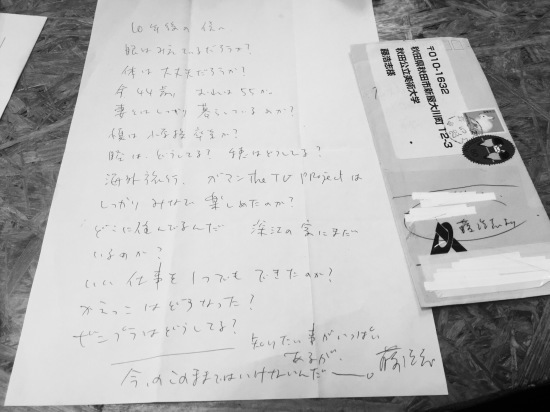 10年後の僕へ
眼はみえているだろうか?
体は大丈夫だろうか?
今44歳
妻とはしっかり暮らしているのか?
娘は小学校
海外旅行、ガマンthe TV Projectは
しっかりみなで楽しめたのか?
どこに住んでるんだ 深江の家にまだ
いるのか?
いい仕事を1つでもできたのか?
かえっこはどうなった?
ザンブラはどうしてる?
知りたい事がいっぱい
あるが、
今、このままではいけないんだ――。
藤浩志
〒010-1632
秋田県秋田市新屋大川町12-3
秋田公立美術大学
藤浩志様